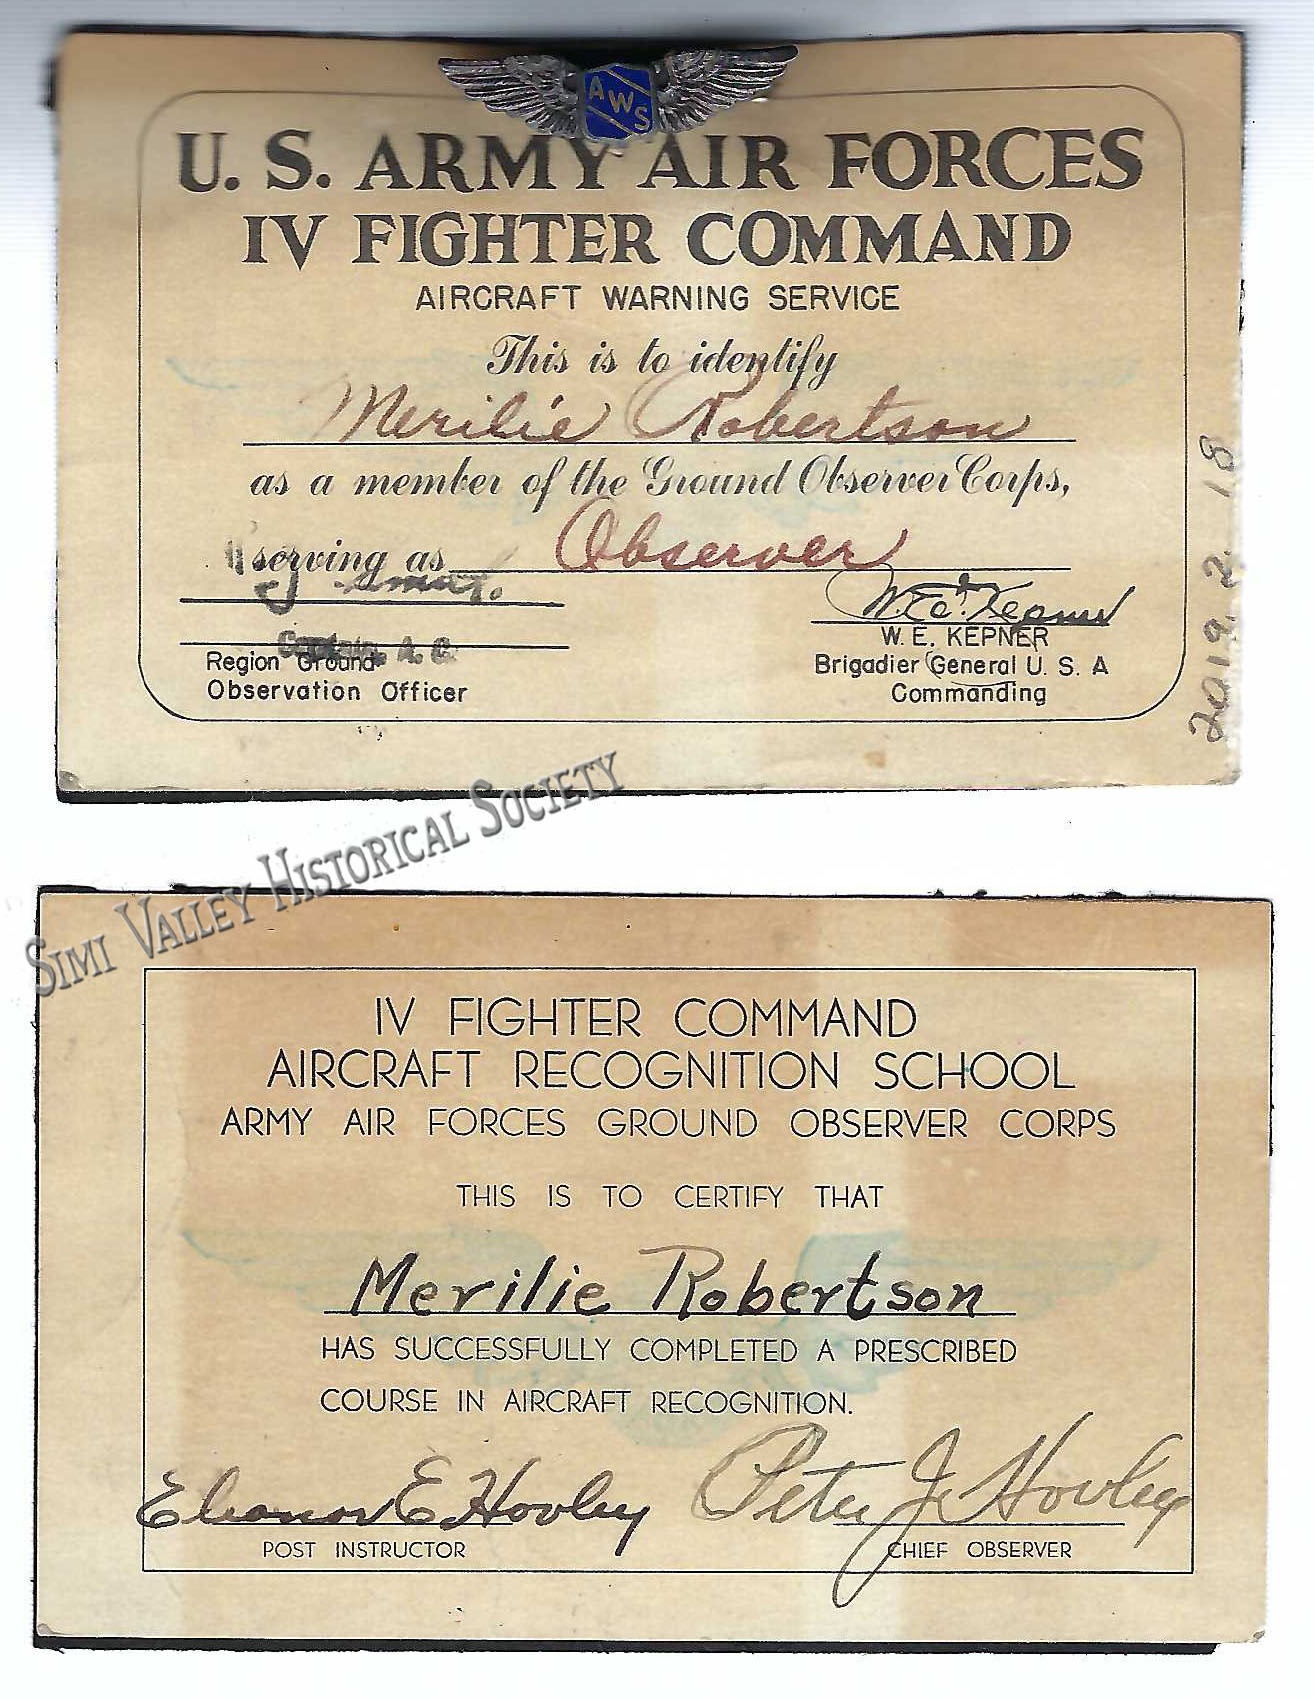 AWS
U. S. ARMY AIR FORCES
IV FIGHTER COMMAND
AIRCRAFT WARNING SERVICE
This is to identify
Merilie Robertson
as a member of the Ground Observer Corps,
serving as Observer
W. E. KEPNER
Captain, A. C.
Region Ground
Observation Officer
Brigadier General U. S. A
Commanding
2019.2.18
SIMI VALLEY HISTORICAL SOCIETY
IV FIGHTER COMMAND
AIRCRAFT RECOGNITION SCHOOL
ARMY AIR FORCES GROUND OBSERVER CORPS
THIS IS TO CERTIFY THAT
Merilie Robertson
HAS SUCCESSFULLY COMPLETED A PRESCRIBED
COURSE IN AIRCRAFT RECOGNITION.
Eleanor E. Hovley Peter J. Hovley
POST INSTRUCTOR CHIEF OBSERVER